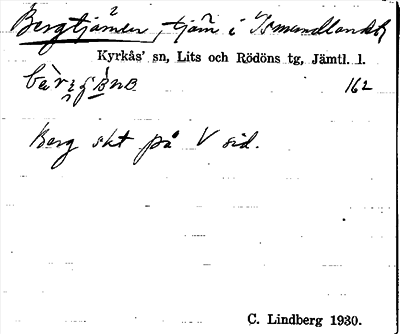 Bergtjärnen, tjärn i
Kyrkås' sn, Lits och Rödöns tg, Jämtl. l.
162
Berg skt på V sid.
C. Lindberg 1930.